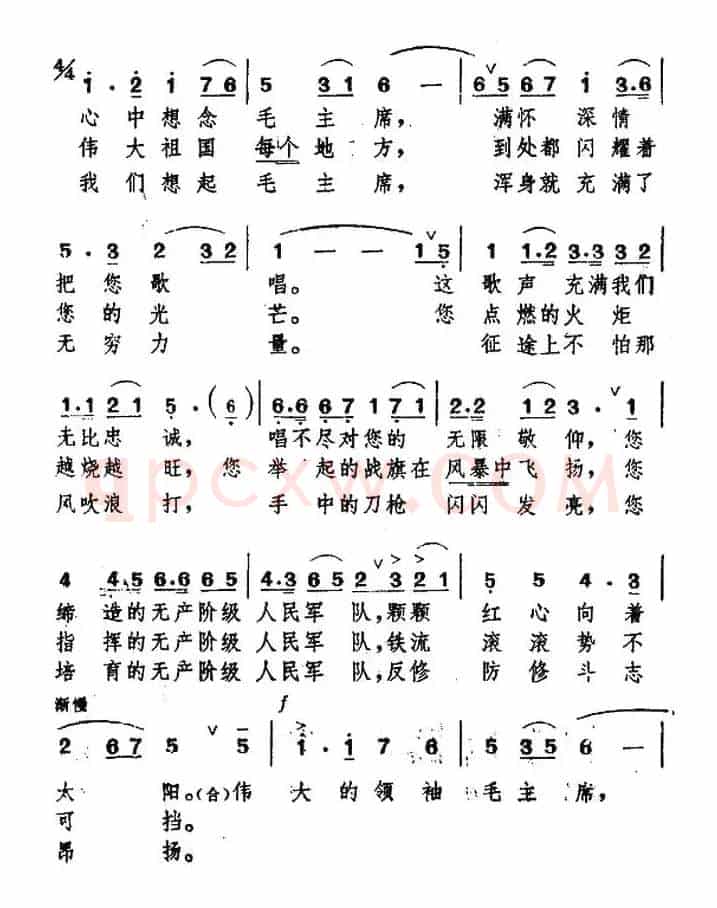 4/4 1 · 2 1 7 6 | 5 3 1 6 — | 6 5 6 7 1 3·6 |
心中想念毛主席， 满怀深情
伟大祖国每个地方， 到处都闪耀着
我们想起毛主席， 浑身就充满了
5 · 3 2 3 2 | 1 — — 1 5 | 1 1·2 3·3 3 2 |
把您歌唱。 这歌声充满我们
您的光芒。 您点燃的火炬
无穷力量。 征途上不怕那
1·1 2 1 5 · (6) | 6·6 6 7 1 7 1 | 2·2 1 2 3 · 1 |
无比忠诚， 唱不尽对您的无限敬仰，您
越烧越旺，您举起的战旗在风暴中飞扬，您
风吹浪打， 手中的刀枪闪闪发亮，您
4 4·5 6·6 6 5 | 4·3 6 5 2 3 2 1 | 5 5 4 · 3 |
缔造的无产阶级人民军队，颗颗红心向着
指挥的无产阶级人民军队，铁流滚滚势不
培育的无产阶级人民军队，反修防修斗志
渐慢 f
2 6 7 5 5 | 1 · 1 7 6 | 5 3 5 6 — |
太阳。（合）伟大的领袖毛主席，
可挡。
昂扬。
qpcxw.com